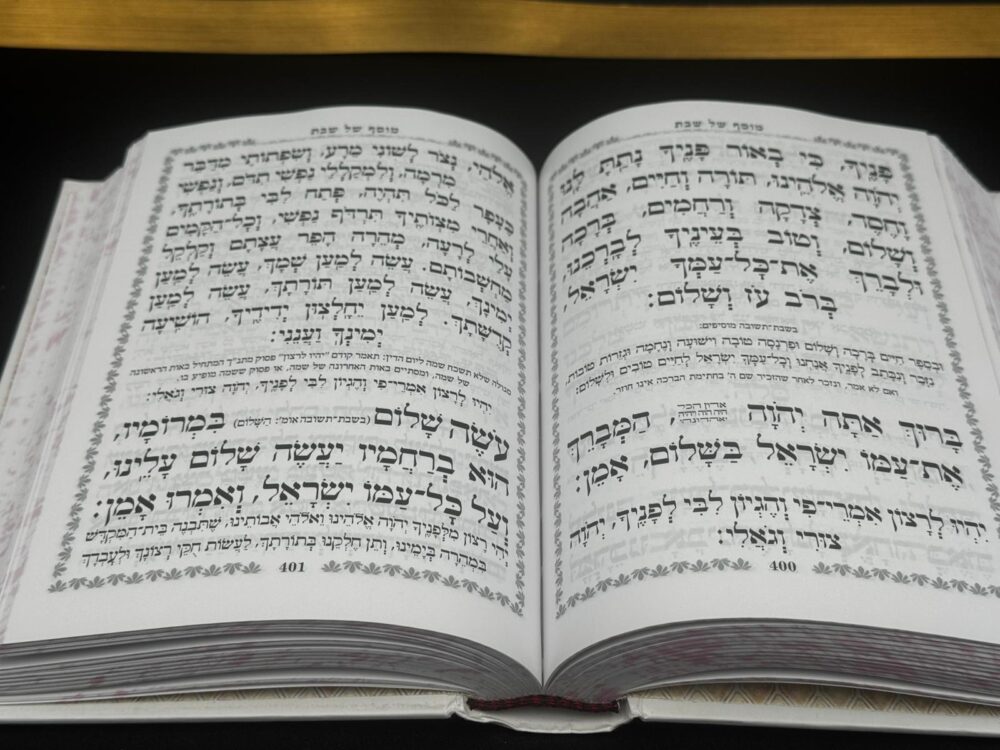 מוסף של שבת
פָּנֶיךָ, כִּי בְאוֹר פָּנֶיךָ נָתַתָּ לָּנוּ
יְהֹוָה אֱלֹהֵינוּ, תּוֹרָה וְחַיִּים, אַהֲבָה
וָחֶסֶד, צְדָקָה וְרַחֲמִים, בְּרָכָה
וְשָׁלוֹם, וְטוֹב בְּעֵינֶיךָ לְבָרְכֵנוּ,
וּלְבָרֵךְ אֶת־כָּל־עַמְּךָ יִשְׂרָאֵל,
בְּרֹב עֹז וְשָׁלוֹם:
בשבת־תשובה מוסיפים:
וּבְסֵפֶר חַיִּים בְּרָכָה וְשָׁלוֹם וּפַרְנָסָה טוֹבָה וִישׁוּעָה וְנֶחָמָה וּגְזֵרוֹת טוֹבוֹת,
נִזָּכֵר וְנִכָּתֵב לְפָנֶיךָ אֲנַחְנוּ וְכָל־עַמְּךָ יִשְׂרָאֵל לְחַיִּים טוֹבִים וּלְשָׁלוֹם:
ואם לא אמר, ונזכר לאחר שהזכיר שם ה' בחתימת הברכה אינו חוזר.
בָּרוּךְ אַתָּה יְהֹוָה, הַמְבָרֵךְ
אֶת־עַמּוֹ יִשְׂרָאֵל בַּשָּׁלוֹם, אָמֵן:
יִהְיוּ לְרָצוֹן אִמְרֵי־פִי וְהֶגְיוֹן לִבִּי לְפָנֶיךָ, יְהֹוָה
צוּרִי וְגֹאֲלִי:
400
מוסף של שבת
אֱלֹהַי, נְצֹר לְשׁוֹנִי מֵרָע, וְשִׂפְתוֹתַי מִדַּבֵּר
מִרְמָה, וְלִמְקַלְלַי נַפְשִׁי תִדֹּם, וְנַפְשִׁי
כֶּעָפָר לַכֹּל תִּהְיֶה, פְּתַח לִבִּי בְּתוֹרָתֶךָ,
וְאַחֲרֵי מִצְוֹתֶיךָ תִּרְדֹּף נַפְשִׁי, וְכָל־הַקָּמִים
עָלַי לְרָעָה, מְהֵרָה הָפֵר עֲצָתָם וְקַלְקֵל
מַחְשְׁבוֹתָם. עֲשֵׂה לְמַעַן שְׁמָךְ, עֲשֵׂה לְמַעַן
יְמִינָךְ, עֲשֵׂה לְמַעַן תּוֹרָתָךְ, עֲשֵׂה לְמַעַן
קְדֻשָּׁתָךְ. לְמַעַן יֵחָלְצוּן יְדִידֶיךָ, הוֹשִׁיעָה
יְמִינְךָ וַעֲנֵנִי:
סגולה שלא תשכח שמה ליום הדין: תאמר קודם "יהיו לרצון" פסוק מתנ"ך המתחיל באות הראשונה
של שמה, ומסתיים באות האחרונה של שמה, או פסוק ששמה מופיע בו.
יִהְיוּ לְרָצוֹן אִמְרֵי־פִי וְהֶגְיוֹן לִבִּי לְפָנֶיךָ, יְהֹוָה צוּרִי וְגֹאֲלִי:
עֹשֶׂה שָׁלוֹם (בשבת־תשובה אומ': הַשָּׁלוֹם) בִּמְרוֹמָיו,
הוּא בְרַחֲמָיו יַעֲשֶׂה שָׁלוֹם עָלֵינוּ,
וְעַל כָּל־עַמּוֹ יִשְׂרָאֵל, וְאִמְרוּ אָמֵן:
יְהִי רָצוֹן מִלְּפָנֶיךָ יְהֹוָה אֱלֹהֵינוּ וֵאלֹהֵי אֲבוֹתֵינוּ, שֶׁתִּבְנֶה בֵּית־הַמִּקְדָּשׁ
בִּמְהֵרָה בְיָמֵינוּ, וְתֵן חֶלְקֵנוּ בְּתוֹרָתָךְ, לַעֲשׂוֹת חֻקֵּי רְצוֹנָךְ וּלְעָבְדָךְ
401